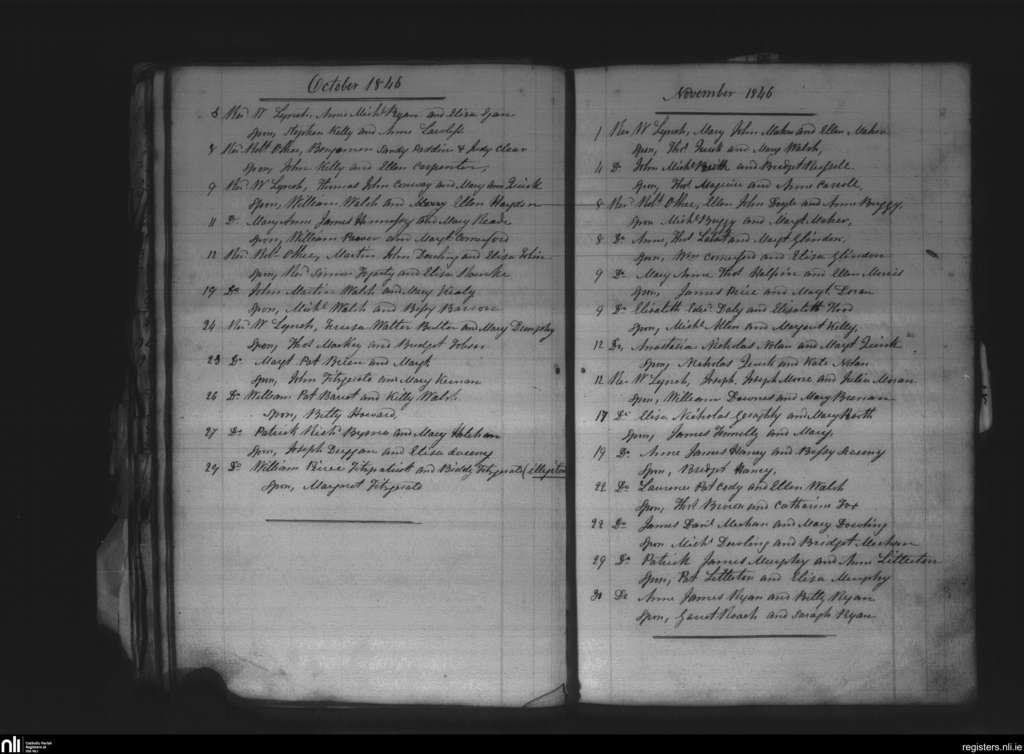 October 1846
5 Rev W Lynch, Anne Michl Ryan and Eliza Egan
Spon, Stephen Kelly and Anne
8 Rev Robt O'Kee, Benjamin Sandy and Judy Clear
Spon, John Kelly and Ellen Carpenter,
9 Rev W Lynch, Thomas John Conway and Mary Anne Quirk
Spon, William Walsh and Mary Ellen Hayden
11 Do Mary Anne James Humfry and Mary Meade
Spon, William Power and Margt Comerford
12 Rev Robt O'Kee, Martin John Dowling and Eliza Tobin
Spon, Rev James Fogarty and Eliza Rourke
19 Do John Martin Walsh and Mary Healy
Spon, Michl Walsh and Bessy Barron
24 Rev W Lynch, Teresa Walter Butler and Mary Dempsey
Spon, Thos Markey and Bridget Tobin
23 Do Margt Pat Brien and Margt
Spon, John Fitzgerald and Mary Keenan
26 Do William Pat Barrot and Kitty Walsh
Spon, Betty Howard,
27 Do Patrick Richd Byrne and Mary Holohan
Spon, Joseph Duggan and Eliza
29 Do William Pierce Fitzpatrick and Biddy Fitzgerald (illegitim
Spon, Margaret Fitzgerald
November 1846
1 Rev W Lynch, Mary John Maher and Ellen Maher
Spon, Thos Quirk and Mary Walsh,
4 Do John Michl and Bridget Russell
Spon, Thos Maguire and Anne Carroll,
8 Rev Robt O'Kee, Ellen John Doyle and Anne Buggy
Spon Michl Buggy and Margt Maher,
8 Do Anne, Thos and Margt Glindon,
Spon, Wm Comerford and Eliza Glindon
9 Do Mary Anne Thos Halpin and Ellen Morris
Spon, James Price and Margt Doran
9 Do Elizabeth Edwd Daly and Elizabeth Ford
Spon, Michl Allen and Margaret Kelly,
12 Do, Anastasia Nicholas Nolan and Margt Quirk
Spon, Nicholas Quirk and Kate Nolan
12 Rev W Lynch, Joseph, Joseph Moore and Julia Moran
Spon, William Downes and Mary Brenan
17 Do Eliza Nicholas Geraghty and Mary Roth
Spon, James Fennelly and Mary,
19 Do Anne James Haney and Bessy
Spon, Bridget Haney,
22 Do Laurence Pat Cody and Ellen Walsh
Spon, Thos Brown and Catharine Fox
22 Do James Danl Meehan and Mary Dowling
Spon Michl Dowling and Bridget Meehan
29 Do Patrick James Murphy and Anne Litterton
Spon, Pat Litterton and Eliza Murphy
30 Do Anne James Ryan and Betty Ryan
Spon, Garret Roach and Sarah Ryan
nli Catholic Parish Registers at the NLI
registers.nli.ie